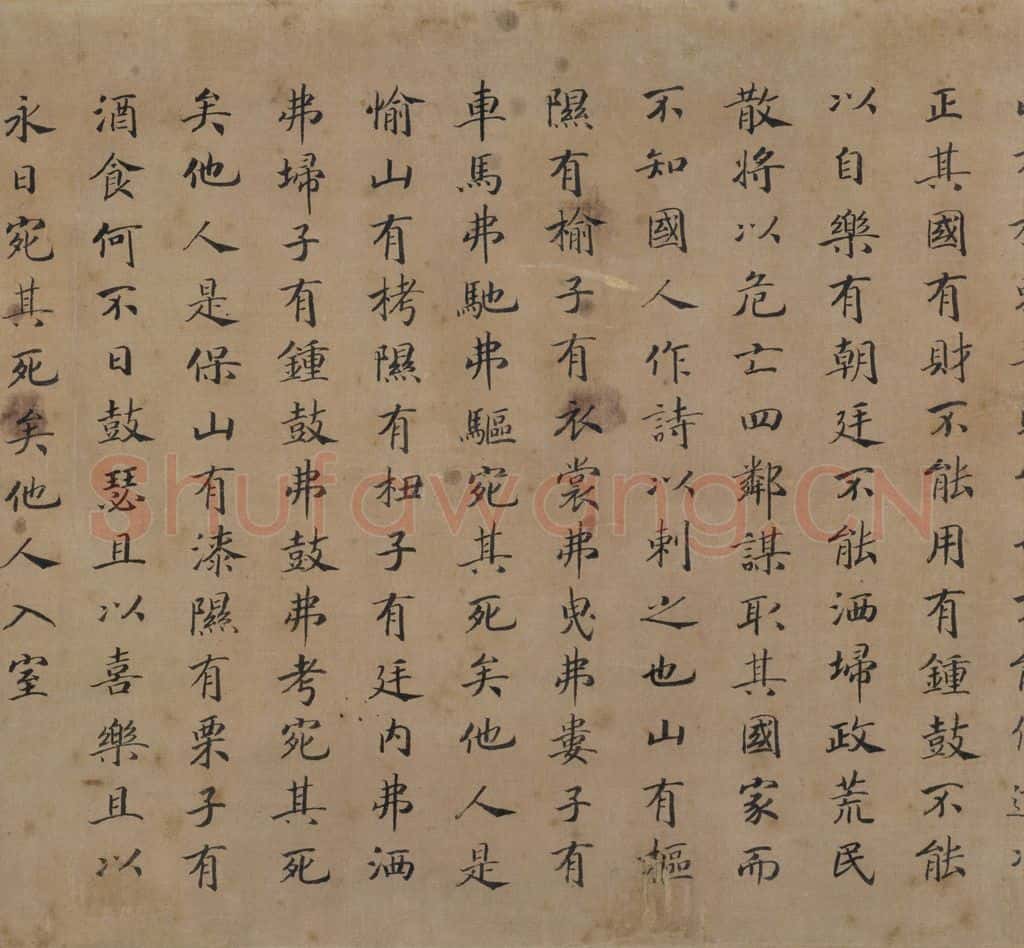 正其國有財不能用有鍾鼓不能
以自樂有朝廷不能洒埽政荒民
散將以危亡四鄰謀取其國家而
不知國人作詩以刺之也山有樞
隰有榆子有衣裳弗曳弗婁子有
車馬弗馳弗驅宛其死矣他人是
愉山有栲隰有杻子有廷内弗洒
弗埽子有鍾鼓弗鼓弗考宛其死
矣他人是保山有漆隰有栗子有
酒食何不日鼓瑟且以喜樂且以
永日宛其死矣他人入室
Shufawang.CN